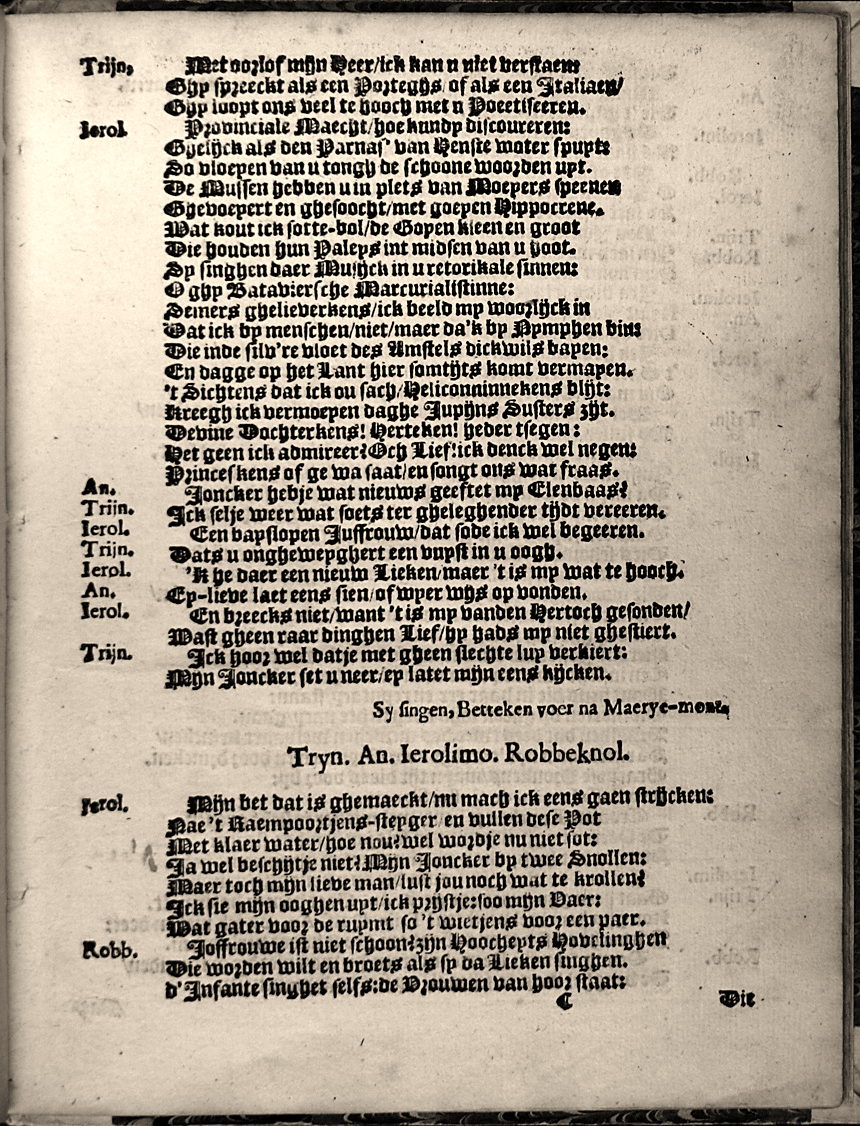 Trijn, Met oorlof mijn Heer/ick kan u niet verstaen:
Ghy spreeckt als een Porteghs/of als een Italiaen/
Ghy loopt ons veel te hooch met u Poeetiseeren.
Ierol. Provinciale Maecht/hoe kundy discoureren:
Ghelijck als den Parnas' van Henste woter spuyt:
So vloepen van u tongh de schoone woorden uyt.
De Mussen hebben u in plets van Moeyers speenen
Ghevoepert en ghesoocht/met goeyen Hippocrene.
Wat kout ick sotte-bol/de Gopen kleen en groot
Die houden hun Paleys int midsen van u hoot.
Sy singhen daer Musijck in u retorikale sinnen:
O ghy Bataviersche Marcurialistinne:
Semers ghelieverkens/ick beeld my woorlijck in
Dat ick by menschen/niet/maer da'k by Nymphen bin:
Die inde silv're vloet des Amstels dickwils bayen:
En dagge op het Lant hier somtijts komt vermayen.
't Sichtens dat ick ou sach/Heliconninnekens blijt:
Kreegh ick vermoeyen daghe Jupijns Susters zijt.
Devine Dochterkens! Herteken! heder tsegen:
Het geen ick admireer? Och Lief! ick denck wel negen:
Princeskens of ge wa saat/en songt ons wat fraas.
An. Joncker hebje wat nieuws geeftet my Elenbaas?
Trijn. Ick selje weer wat soets ter gheleghender tijdt vereeren.
Ierol. Een bayslopen Juffrouw/dat sode ick wel begeeren.
Trijn. Dats u ongheweyghert een vuyst in u oogh.
Ierol. 'K he daer een nieuw Lieken/maer 't is my wat te hooch.
An. Ey-lieve laet eens sien/of wyer wijs op vonden.
Ierol. En breecks niet/want 't is my vanden Hertoch gesonden/
Wast gheen raar dinghen Lief/hy hads my niet ghestiert.
Trijn. Ick hoor wel datje met gheen slechte luy verkiert:
Mijn Joncker set u neer/ey latet mijn eens kijcken.
Sy singen, Betteken voer na Maerye-mont.
Tryn. An. Ierolimo. Robbeknol.
Ierol. Mijn bet dat is ghemaeckt/nu mach ick eens gaen strijcken:
Nae 't Kaempoortjens-steyger en vullen dese Pot
Met klaer water/hoe nou? wel wordje nu niet sot:
Ja wel beschijtje niet? Mijn Joncker by twee Snollen:
Maer toch mijn lieve man/lust jou noch wat te krollen?
Ick sie mijn ooghen uyt/ick prijstje: soo mijn Vaer:
Wat gater voor de ruymt so 't wietjens voor een paer.
Robb. Joffrouwe ist niet schoon? zijn Hoocheyts Hovelinghen
Die worden wilt en broets als sy da Lieken singhen.
d'Infante singhet selfs: de Vrouwen van hoor staat:
C Dit